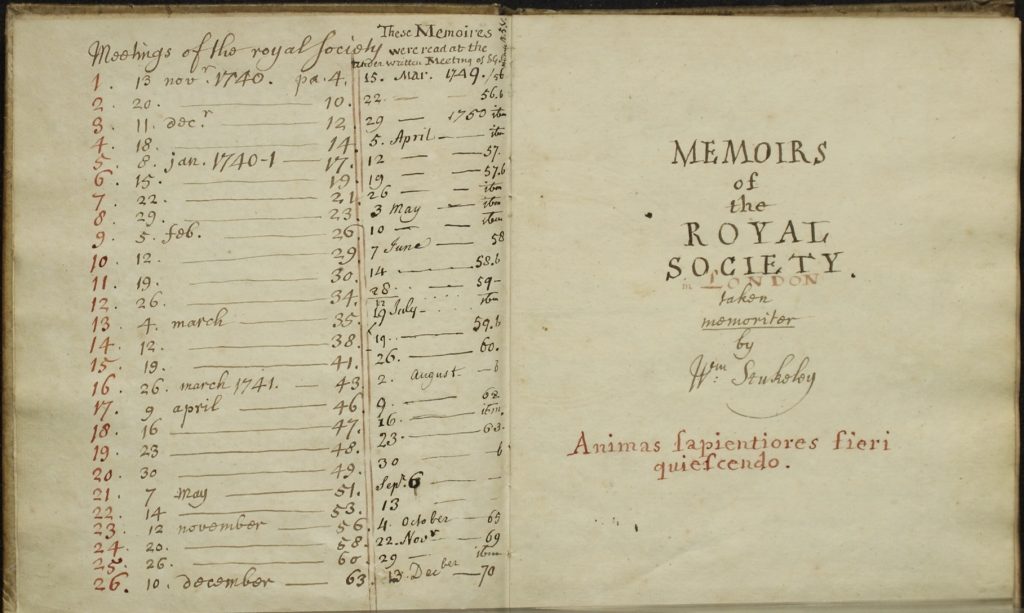 Meetings of the royal society
1. 13 novr. 1740. pa. 4.
2. 20. 10.
3. 11. decr. 12
4. 18. 14
5. 8. jan. 1740-1 17.
6. 15. 19
7. 22. 21.
8. 29. 23.
9. 5. feb. 26
10. 12. 29
11. 19. 30.
12. 26. 34.
13. 4. march 35.
14. 12. 38.
15. 19. 41.
16. 26. march 1741. 43.
17. 9 april 46
18. 16 47.
19. 23 48.
20. 30 49.
21. 7 may 51.
22. 14 53.
23. 12 november 56
24. 20. 58.
25. 26. 60
26. 10. december 63
These Memoires
were read at the
under written Meeting of
15. Mar. 1749. /56
22 56.b
29 1750 ibm
5. April ibm
12 57.
19 57.b
26 ibm
3 May ibm
10 ibm
7 June 58
14 58.b
28 59
July ibm
19. 59.b
26. 60.
2. August b
9.
16. ibm.
23.
30 b
Sepr. 6
13
4. October 65
22. Novr 69
29 ibm
13. December 70
MEMOIRS
of
the
ROYAL
SOCIETY.
in LONDON
taken
memoriter
by
Wm: Stukeley
Animas ſapientiores fieri
quieſcendo.